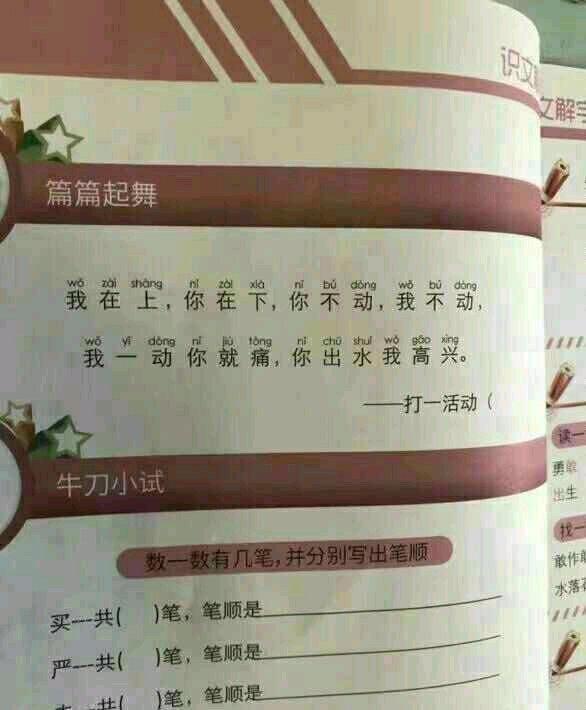 识文
篇篇起舞
wǒ zài shàng nǐ zài xià nǐ bǔ dòng wǒ bǔ dòng
我在上，你在下，你不动，我不动，
wǒ yī dòng nǐ jiù tòng nǐ chū shuǐ wǒ gāo xìng
我一动你就痛，你出水我高兴。
——打一活动（
牛刀小试
数一数有几笔，并分别写出笔顺
买---共(    )笔，笔顺是
严---共(    )笔，笔顺是
---共(    )笔，笔顺是
文解字
读一
勇敢
出生
找一
敢作敢
水落石